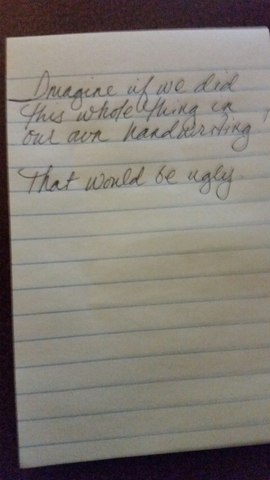 Imagine if we did
this whole thing in
our own handwriting!
That would be ugly.